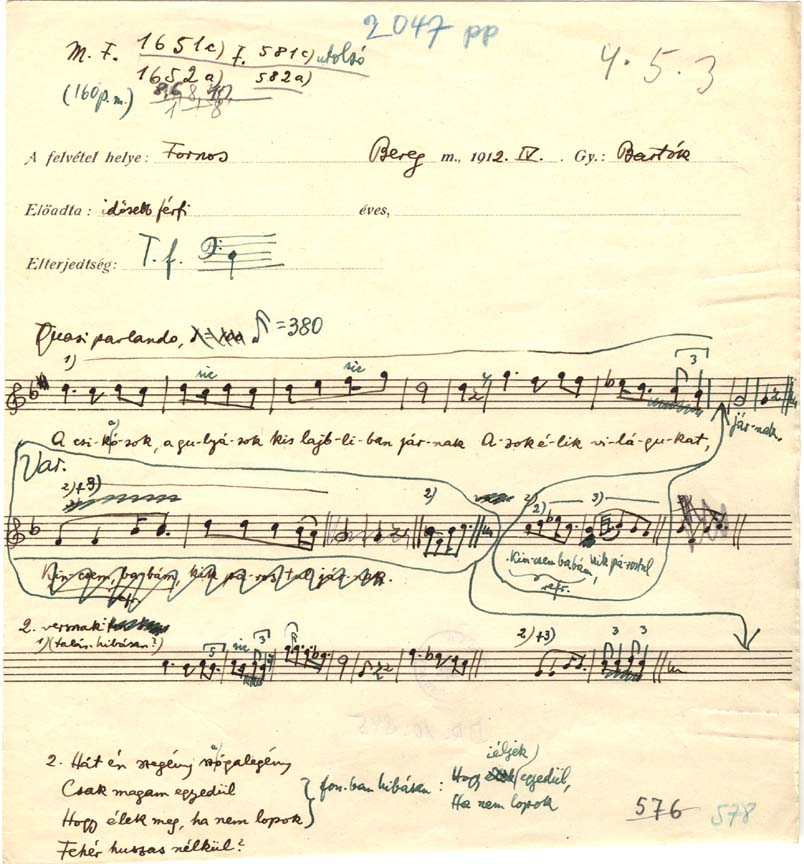 2047 pp
M. F. 1651c) F. 581c) utolsó
1652a) 582a)
(160 p.m.)
4. 5. 3
A felvétel helye: Fornos Bereg m., 1912. IV. Gy.: Bartók
Előadta: idősebb férfi éves,
Elterjedtség: T. f.
Quasi parlando, = 380
1)
sic sic 3
A csi-kó-sok, a gu-lyá-sok kis lajb-li-ban jár-nak A-zok é-lik vi-lá-gu-kat,
jár-nak.
Var.
2)+3) 2) 2) 3)
Kin-csem, babám, kik pá-ros-tul jár-nak.
Kin-csem babám, kik pá-rostul
refr.
refr.
2. versszak
1) (talán hibásan?) 5 sic 3 2)+3) 3 3
2. Hát én szegény szógalegény
Csak magam egyedül
Hogy élek meg, ha nem lopok
Fehér huszas nélkül?
fon.ban hibásan: Hogy éljek egyedül,
Ha nem lopok
576 578